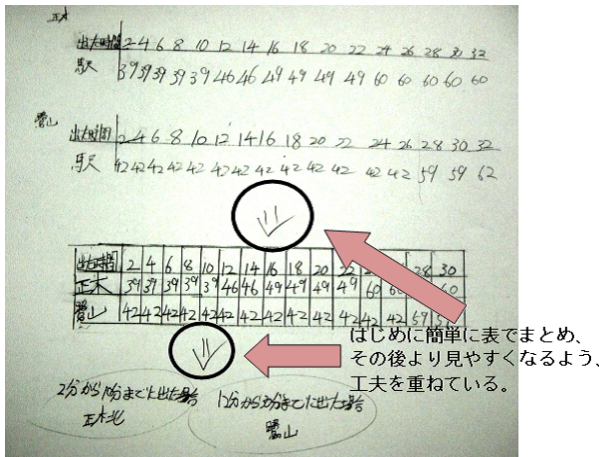 正木
出た時間 2 4 6 8 10 12 14 16 18 20 22 24 26 28 30 32
駅 39 39 39 39 39 46 46 49 49 49 49 60 60 60 60 60
鷺山
出た時間 2 4 6 8 10 12 14 16 18 20 22 24 26 28 30 32
駅 42 42 42 42 42 42 42 42 42 42 42 42 42 59 59 62
出た時間 2 4 6 8 10 12 14 16 18 20 22 28 30
正木 39 39 39 39 39 46 46 49 49 49 49 60 60
鷺山 42 42 42 42 42 42 42 42 42 42 42 42 42 59
はじめに簡単に表でまとめ、
その後より見やすくなるよう、
工夫を重ねている。
2分から10分までに出た場合
正木北
12分から までに出た場合
鷺山